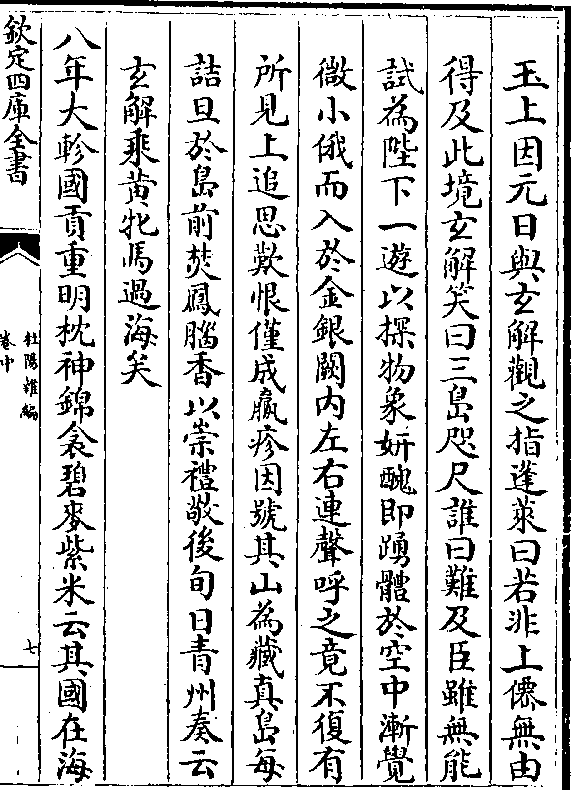 玉上因元日與玄解觀之指蓬萊曰若非上僊無由
得及此境玄解笑曰三島咫尺誰曰難及臣雖無能
試為陛下一遊以探物象妍醜即踴體於空中漸覺
微小俄而入於金銀闕內左右連聲呼之竟不復有
所見上追思歎恨僅成羸疹因號其山為藏真島每
詰旦於島前焚鳳腦香以崇禮敬後旬日青州奏云
玄解乘黃牝馬過海矣
八年大軫國貢重明枕神錦衾碧麥紫米云其國在海
欽定四庫全書
杜陽雜編
卷中
七